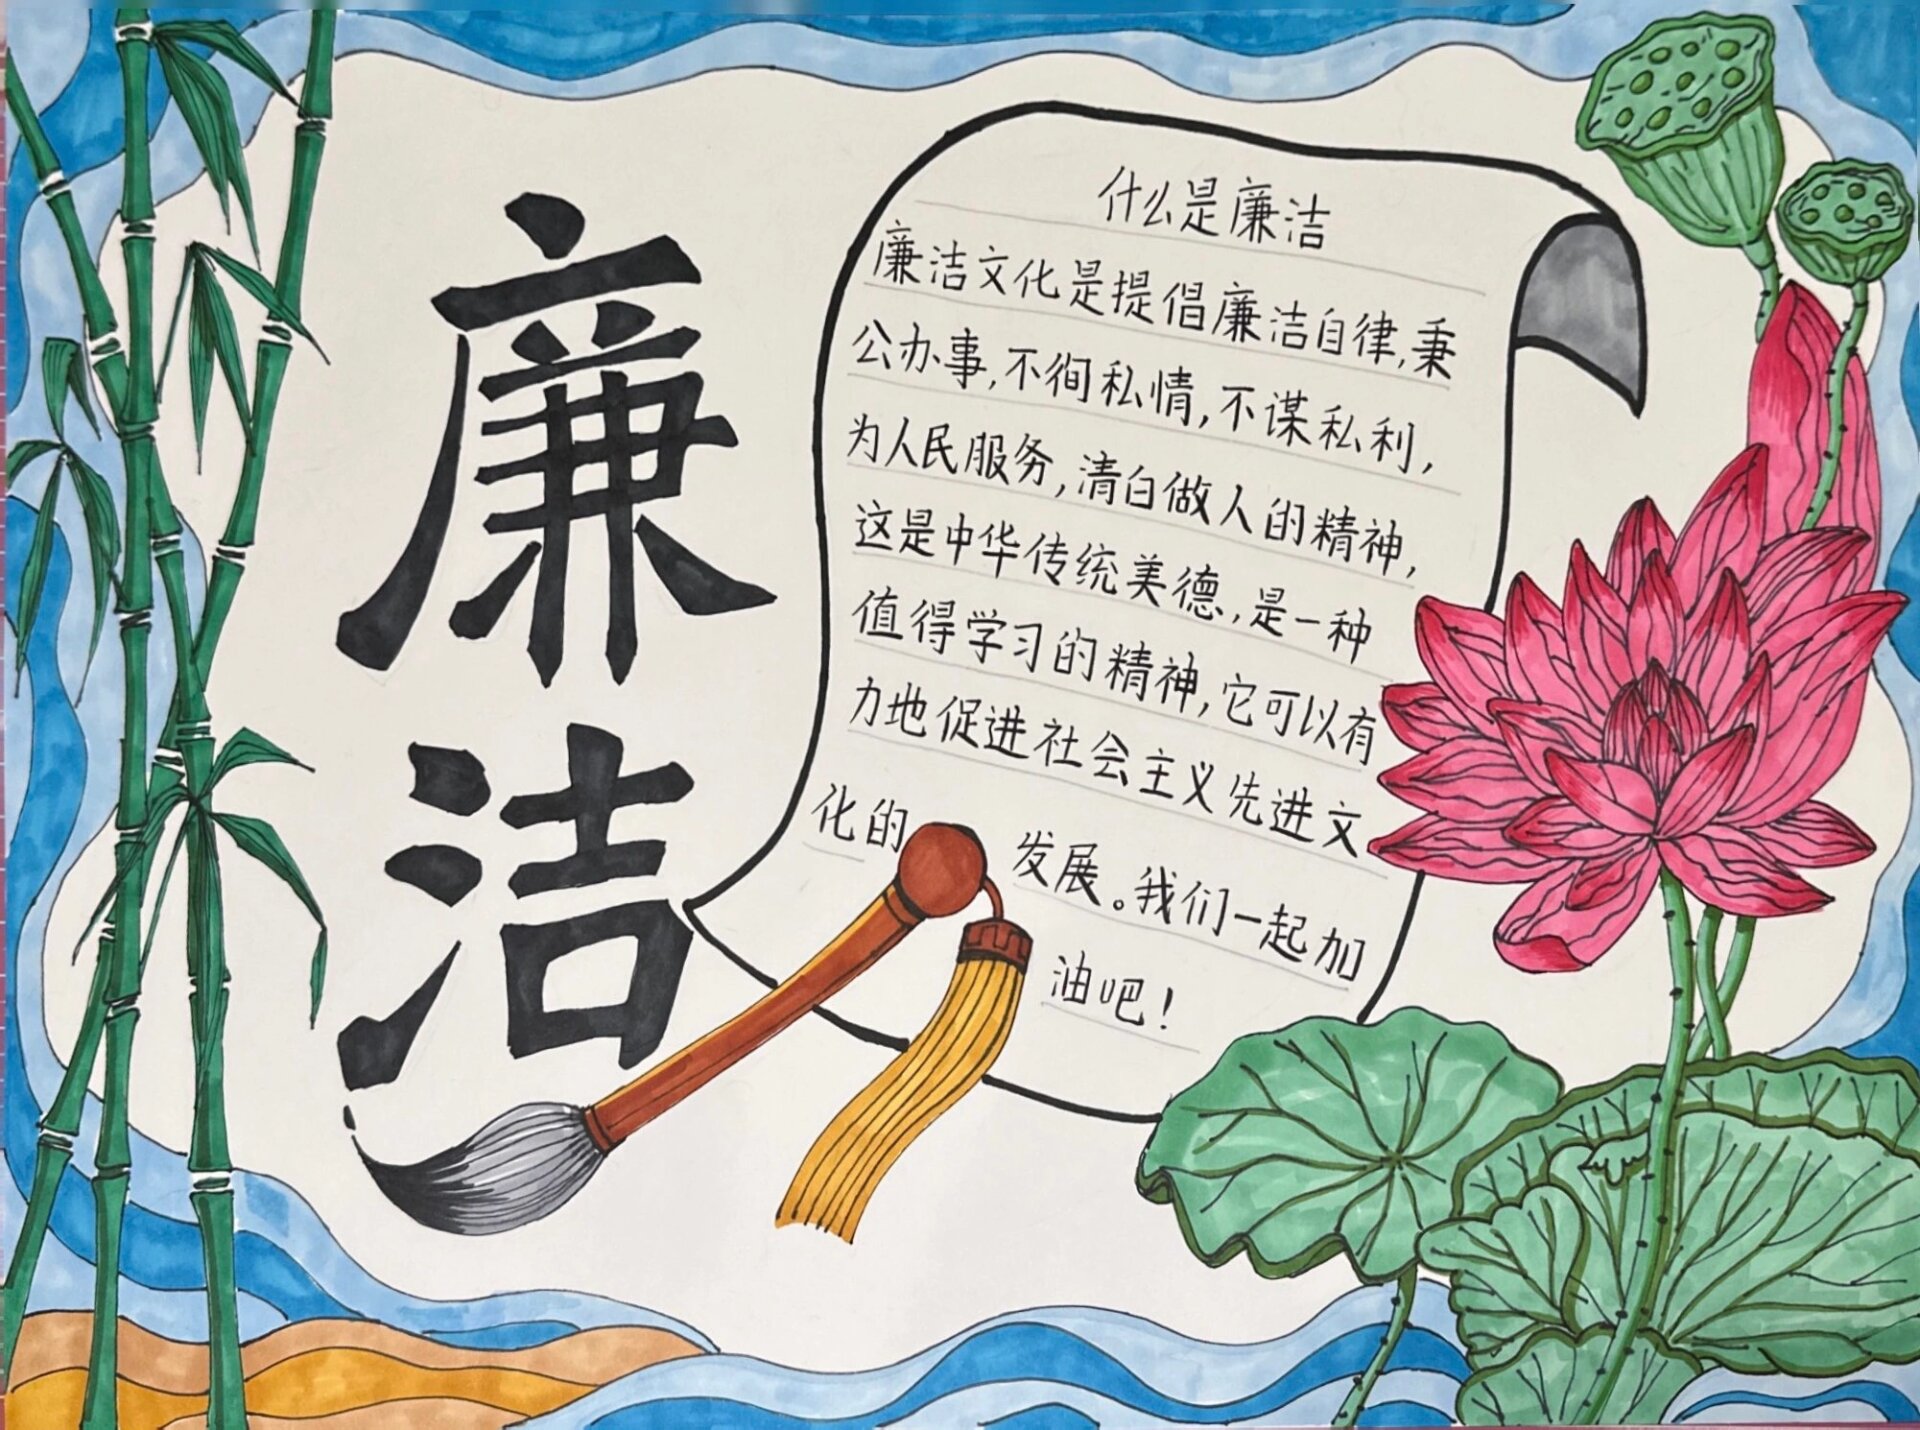 廉洁
什么是廉洁
廉洁文化是提倡廉洁自律,秉
公办事,不徇私情,不谋私利,
为人民服务,清白做人的精神,
这是中华传统美德,是一种
值得学习的精神,它可以有
力地促进社会主义先进文
化的发展。我们一起加
油吧!